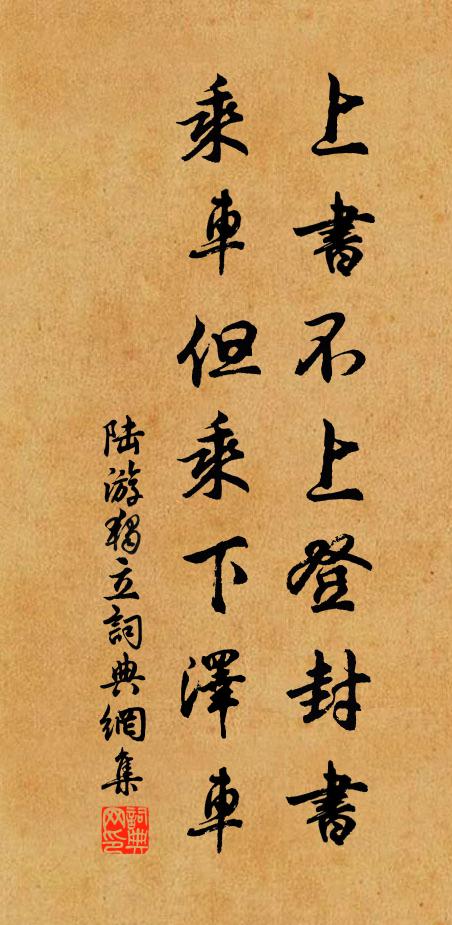 上書不上登封書
乘車但乘下澤車
陆游獨立詞典網集
詞典網印